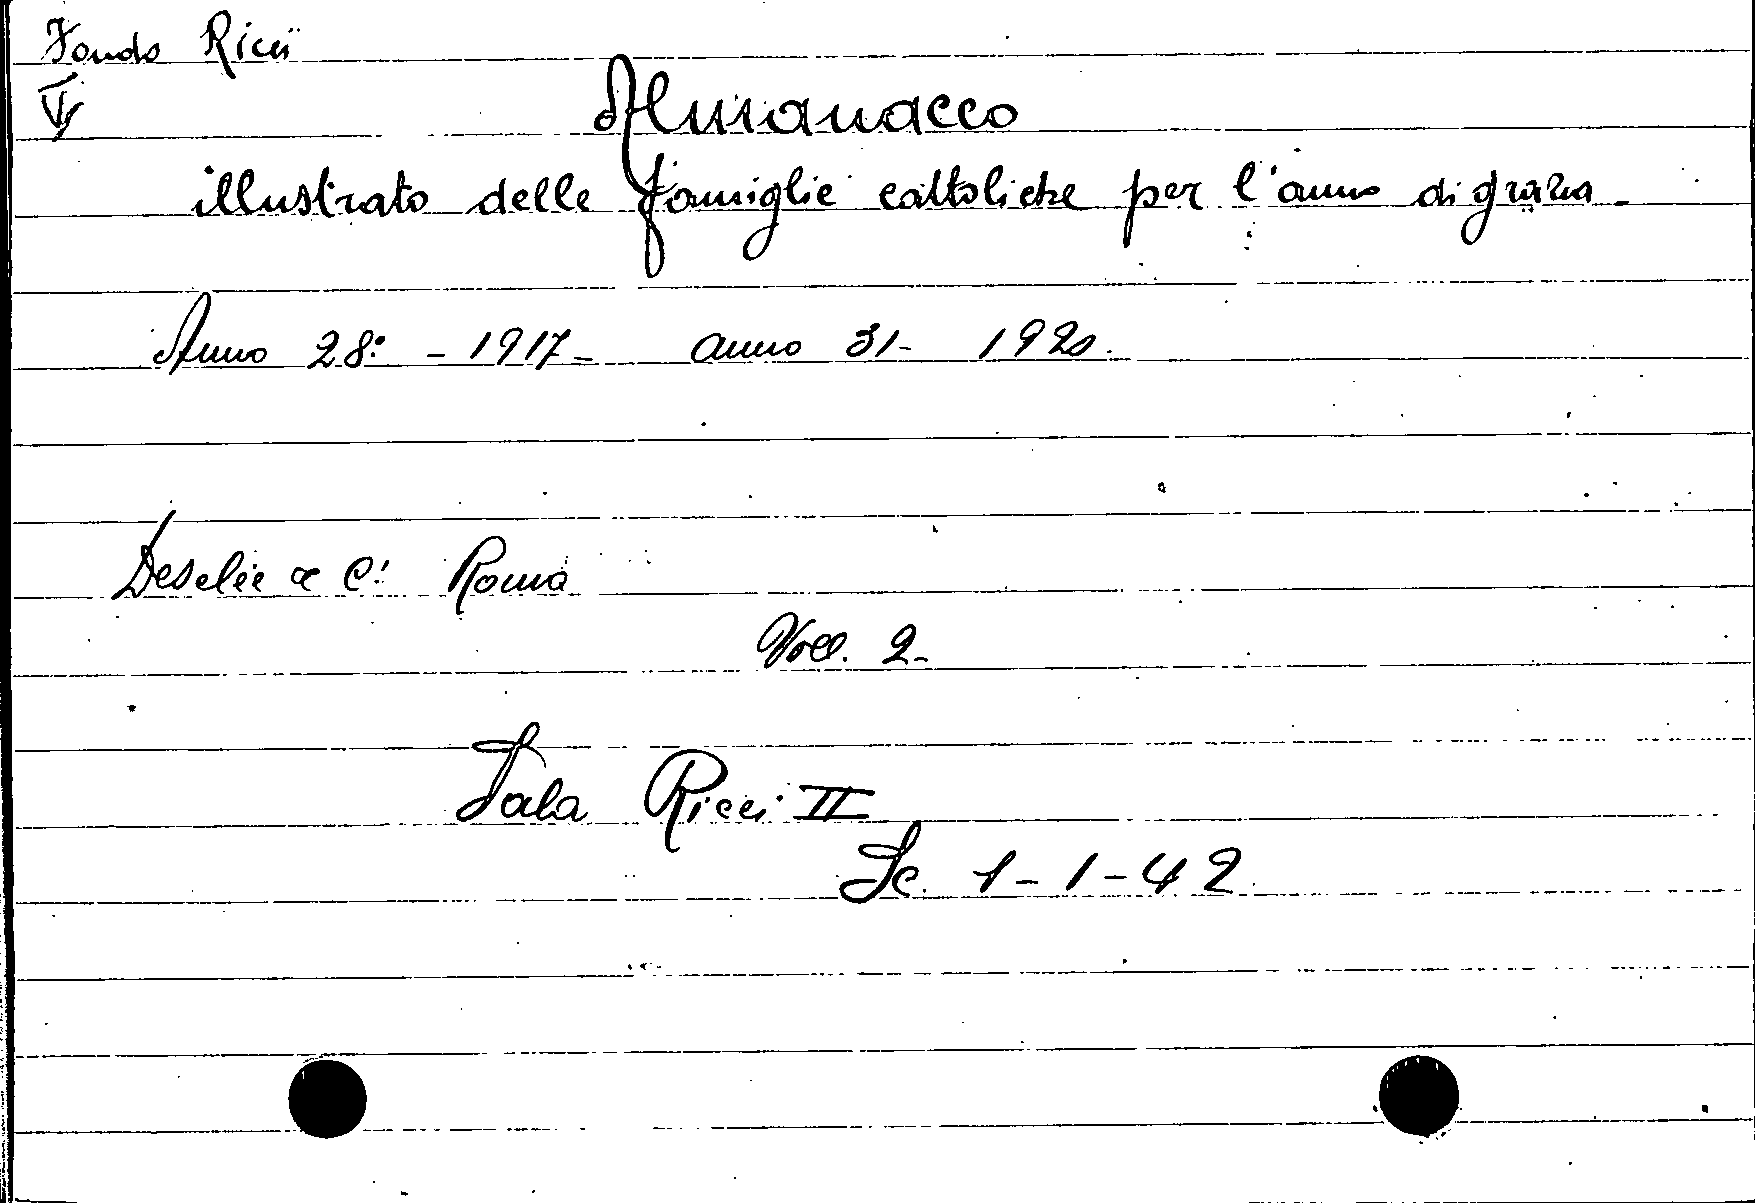 Fondo Ricci
Almanacco
illustrato delle famiglie cattoliche per l'anno di grazia -
Anno 28° - 1917 - anno 31 - 1920.
Desclée e C. Roma
Voll. 2 -
Sala Ricci II
Sc. 1 - 1 - 42